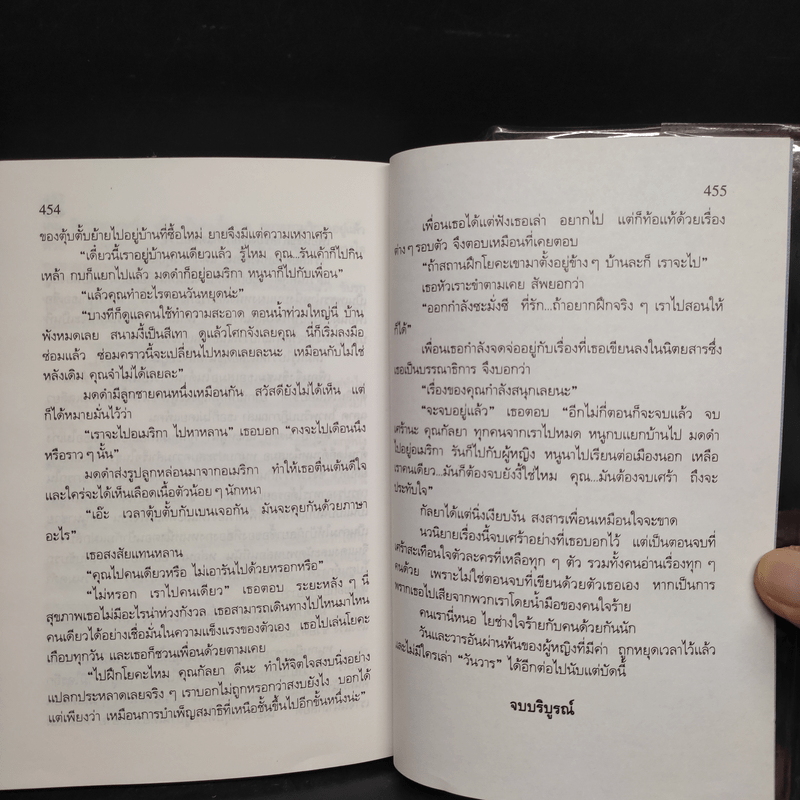 454
ของตุ้บตั้บย้ายไปอยู่บ้านที่ซื้อใหม่ ยายจึงมีแต่ความเหงาเศร้า
“เดี๋ยวนี้เราอยู่บ้านคนเดียวแล้ว รู้ไหม คุณ...รันเค้าก็ไปกิน
เหล้า กบก็แยกไปแล้ว มดดำก็อยู่อเมริกา หนูนาก็ไปกับเพื่อน”
“แล้วคุณทำอะไรตอนวันหยุดน่ะ”
“บางทีก็ดูแลคนใช้ทำความสะอาด ตอนน้ำท่วมใหญ่นี่ บ้าน
พังหมดเลย สนามงี้เป็นสีเทา ดูแล้วโศกจังเลยคุณ นี่ก็เริ่มลงมือ
ซ่อมแล้ว ซ่อมคราวนี้จะเปลี่ยนไปหมดเลยละนะ เหมือนกับไม่ใช่
หลังเดิม คุณจำไม่ได้เลยละ”
มดดำมีลูกชายคนหนึ่งเหมือนกัน สวัสดียังไม่ได้เห็น แต่
ก็ได้หมายมั่นไว้ว่า
“เราจะไปอเมริกา ไปหาหลาน” เธอบอก “คงจะไปเดือนนึง
หรือราว ๆ นั้น”
มดดำส่งรูปลูกหล่อนมาจากอเมริกา ทำให้เธอตื่นเต้นดีใจ
และใคร่จะได้เห็นเลือดเนื้อตัวน้อย ๆ นักหนา
“เอ๊ะ เวลาตุ้บตั้บกับเบนเจอกัน มันจะคุยกันด้วยภาษา
อะไร”
เธอสงสัยแทนหลาน
“คุณไปคนเดียวหรือ ไม่เอารันไปด้วยหรอกหรือ”
“ไม่หรอก เราไปคนเดียว” เธอตอบ ระยะหลัง ๆ นี่
สุขภาพเธอไม่มีอะไรน่าห่วงกังวล เธอสามารถเดินทางไปไหนมาไหน
คนเดียวได้อย่างเชื่อมั่นในความแข็งแรงของตัวเอง เธอไปเล่นโยคะ
เกือบทุกวัน และเธอก็ชวนเพื่อนด้วยตามเคย
“ไปฝึกโยคะไหม คุณกัลยา ดีนะ ทำให้จิตใจสงบนิ่งอย่าง
แปลกประหลาดเลยจริง ๆ เราบอกไม่ถูกหรอกว่าสงบยังไง บอกได้
แต่เพียงว่า เหมือนการบำเพ็ญสมาธิที่เหนือชั้นขึ้นไปอีกขั้นหนึ่งน่ะ”
455
เพื่อนเธอได้แต่ฟังเธอเล่า อยากไป แต่ก็ท้อแท้ด้วยเรื่อง
ต่าง ๆ รอบตัว จึงตอบเหมือนที่เคยตอบ
“ถ้าสถานฝึกโยคะเขามาตั้งอยู่ข้าง ๆ บ้านละก็ เราจะไป”
เธอหัวเราะขำตามเคย สัพยอกว่า
“ออกกำลังซะมั่งซี ที่รัก...ถ้าอยากฝึกจริง ๆ เราไปสอนให้
ก็ได้”
เพื่อนเธอกำลังจดจ่ออยู่กับเรื่องที่เธอเขียนลงในนิตยสารซึ่ง
เธอเป็นบรรณาธิการ จึงบอกว่า
“เรื่องของคุณกำลังสนุกเลยนะ”
“จะจบอยู่แล้ว” เธอตอบ “อีกไม่กี่ตอนก็จะจบแล้ว จบ
เศร้านะ คุณกัลยา ทุกคนจากเราไปหมด หนูกบแยกบ้านไป มดดำ
ไปอยู่อเมริกา รันก็ไปกับผู้หญิง หนูนาไปเรียนต่อเมืองนอก เหลือ
เราคนเดียว...มันก็ต้องจบยังงี้ใช่ไหม คุณ...มันต้องจบเศร้า ถึงจะ
ประทับใจ”
กัลยาได้แต่นิ่งเงียบงัน สงสารเพื่อนเหมือนใจจะขาด
นวนิยายเรื่องนี้จบเศร้าอย่างที่เธอบอกไว้ แต่เป็นตอนจบที่
เศร้าสะเทือนใจตัวละครที่เหลือทุก ๆ ตัว รวมทั้งคนอ่านเรื่องทุก ๆ
คนด้วย เพราะไม่ใช่ตอนจบที่เขียนด้วยตัวเธอเอง หากเป็นการ
พรากเธอไปเสียจากพวกเราโดยน้ำมือของคนใจร้าย
คนเรานี่หนอ ไยช่างใจร้ายกับคนด้วยกันนัก
วันและวารอันผ่านพ้นของผู้หญิงที่มีค่า ถูกหยุดเวลาไว้แล้ว
และไม่มีใครเล่า “วันวาร” ได้อีกต่อไปนับแต่บัดนี้
จบบริบูรณ์